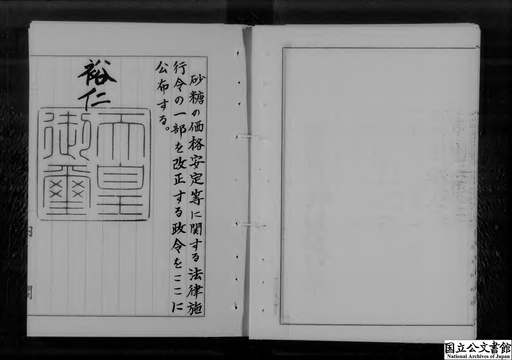 砂糖の価格安定等に関する法律施
行令の一部を改正する政令をここに
公布する。
裕仁
天皇
御璽
国立公文書館
National Archives of Japan